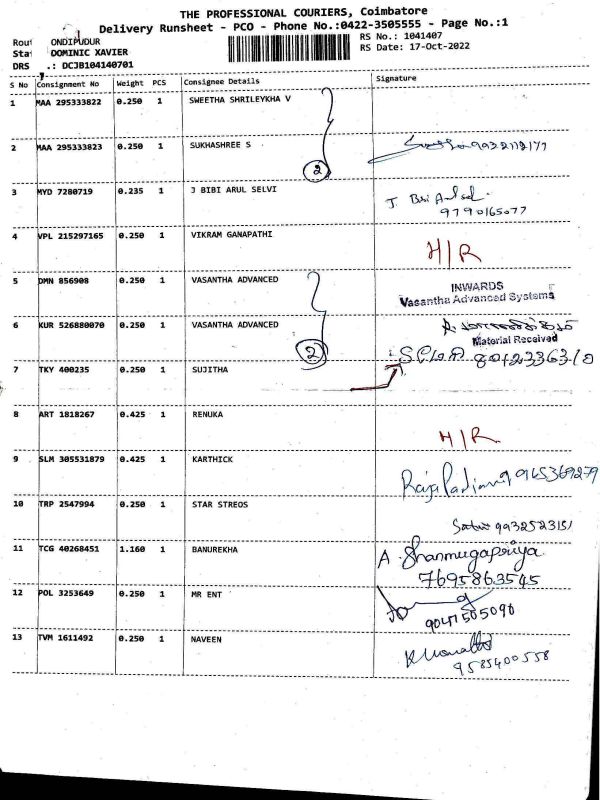 THE PROFESSIONAL COURIERS, Coimbatore
Delivery Runsheet - PCO - Phone No.:0422-3505555 - Page No.:1
ONDIPUDUR
RS No.: 1041407
DOMINIC XAVIER
RS Date: 17-Oct-2022
DRS .: DCJB104140701
S No Consignment No Weight PCS Consignee Details Signature
1 MAA 295333822 0.250 1 SWEETHA SHRILEYKHA V
2 MAA 295333823 0.250 1 SUKHASHREE S
2
3 MYD 7280719 0.235 1 J BIBI ARUL SELVI
9790165077
4 VPL 215297165 0.250 1 VIKRAM GANAPATHI
H/R
5 DMN 856908 0.250 1 VASANTHA ADVANCED
INWARDS
Vasantha Advanced Systems
6 KUR 526880070 0.250 1 VASANTHA ADVANCED
Material Received
2
7 TKY 400235 0.250 1 SUJITHA
8 ART 1818267 0.425 1 RENUKA
H/R
9 SLM 305531879 0.425 1 KARTHICK
10 TRP 2547994 0.250 1 STAR STREOS
11 TCG 40268451 1.160 1 BANUREKHA
A. Shanmugapriya
7695863545
12 POL 3253649 0.250 1 MR ENT
13 TVM 1611492 0.250 1 NAVEEN
9585400558